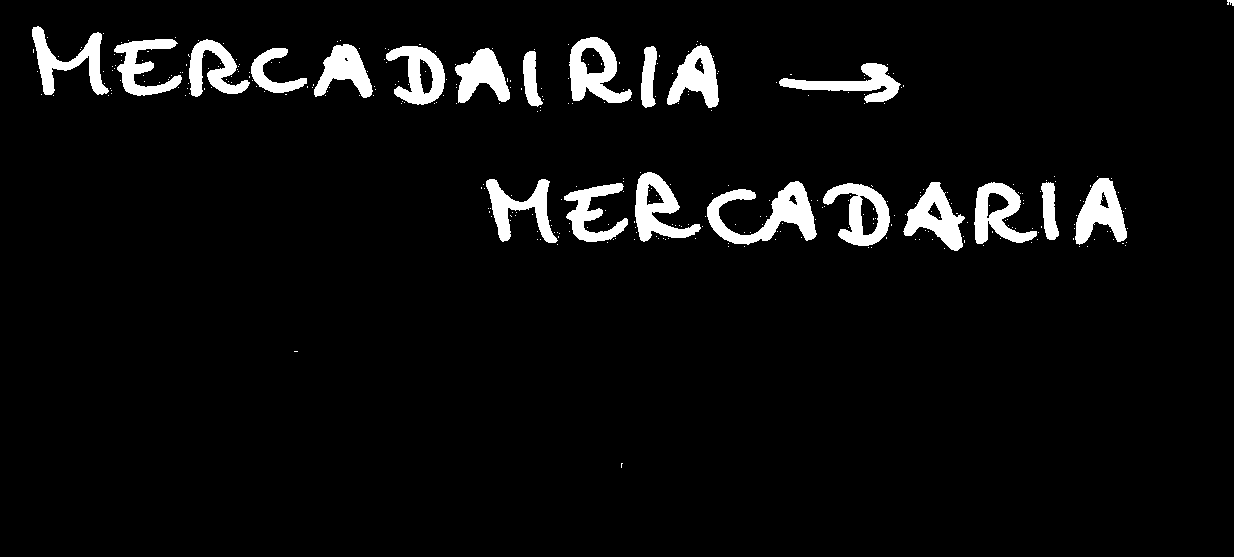 MERCADAIRIA →
MERCADARIA